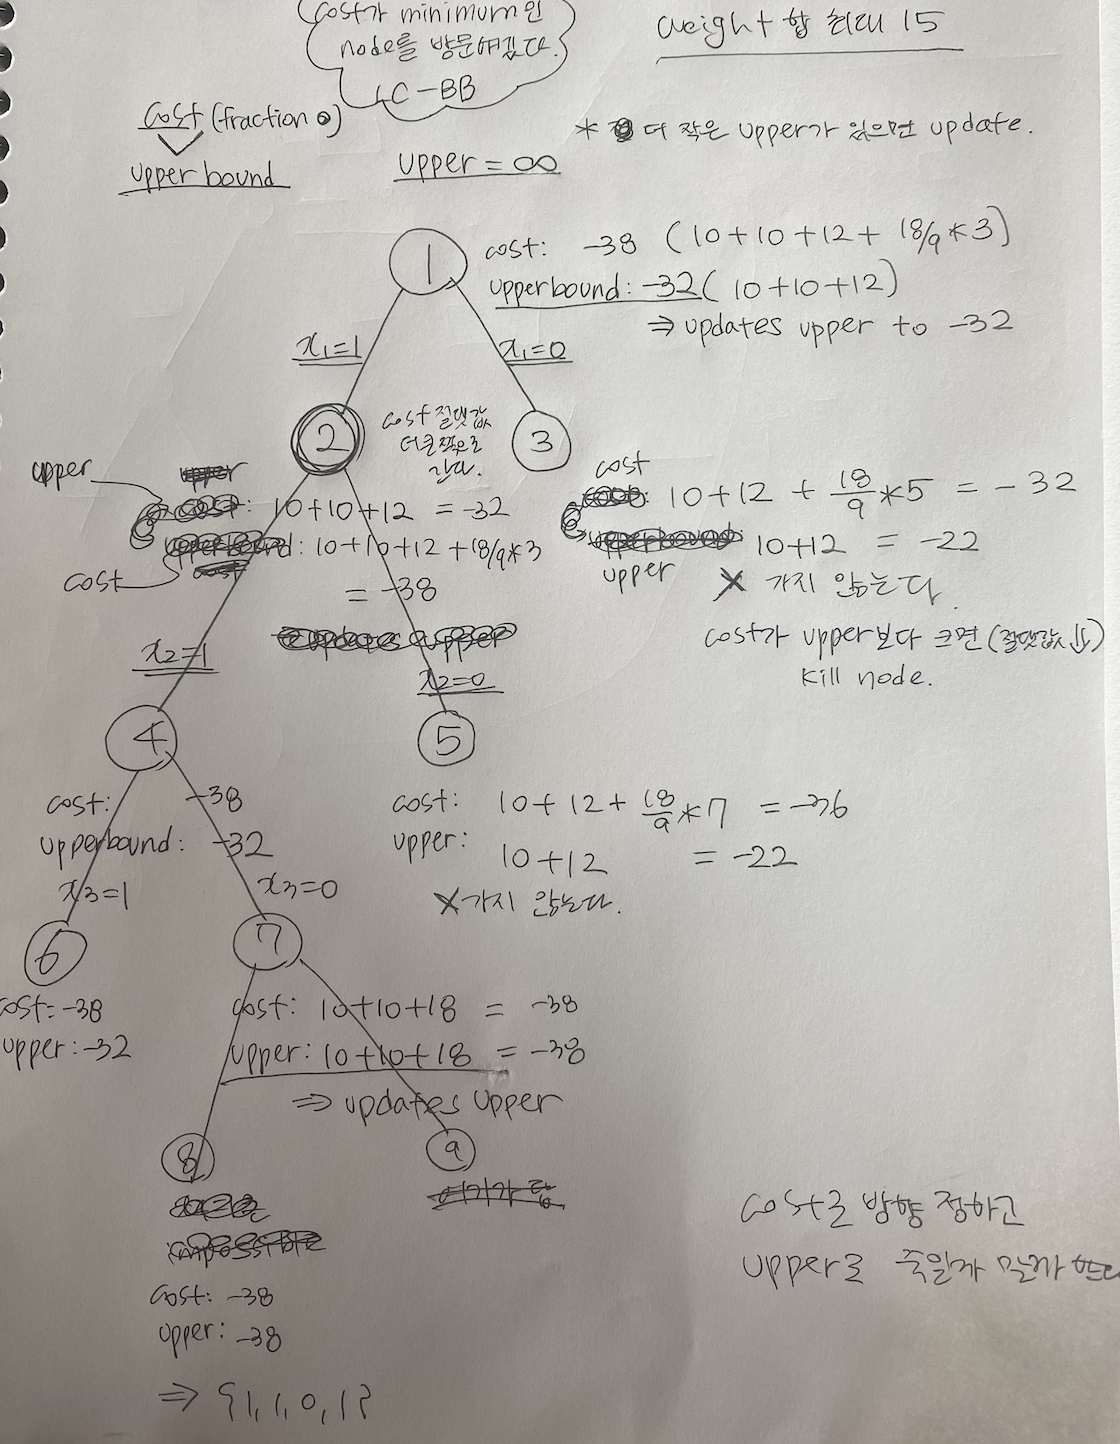 cost가 minimum인
node를 방문하겠다.
LC-BB
weight 합 최대 15
cost (fraction o)
upper bound
upper = ∞
* 더 작은 upper가 있으면 update.
1
cost: -38 (10+10+12+ 18/9*3)
upperbound: -32 (10+10+12)
⇒ updates upper to -32
x1=1
x1=0
2
cost 절댓값
더 큰쪽으로
간다.
3
upper
upper
cost: 10+10+12 = -32
upperbound: 10+10+12 +18/9*3
cost
= -38
updates upper
cost
10+12 + 18/9*5 = -32
upperbound
10+12 = -22
upper
X 가지 않는다.
cost가 upper보다 크면 (절댓값시↓)
kill node.
x2=1
x2=0
4
5
cost: -38
upperbound: -32
cost: 10+12+ 18/9*7 = -36
upper: 10+12 = -22
X 가지 않는다.
x3=1
x3=0
6
7
cost: -38
upper: -32
cost: 10+10+18 = -38
upper: 10+10+18 = -38
⇒ updates upper
8
9
impossible
여기가 답
cost: -38
upper: -38
⇒ {1,1,0,1}
cost로 방향 정하고
upper로 죽일까 말까